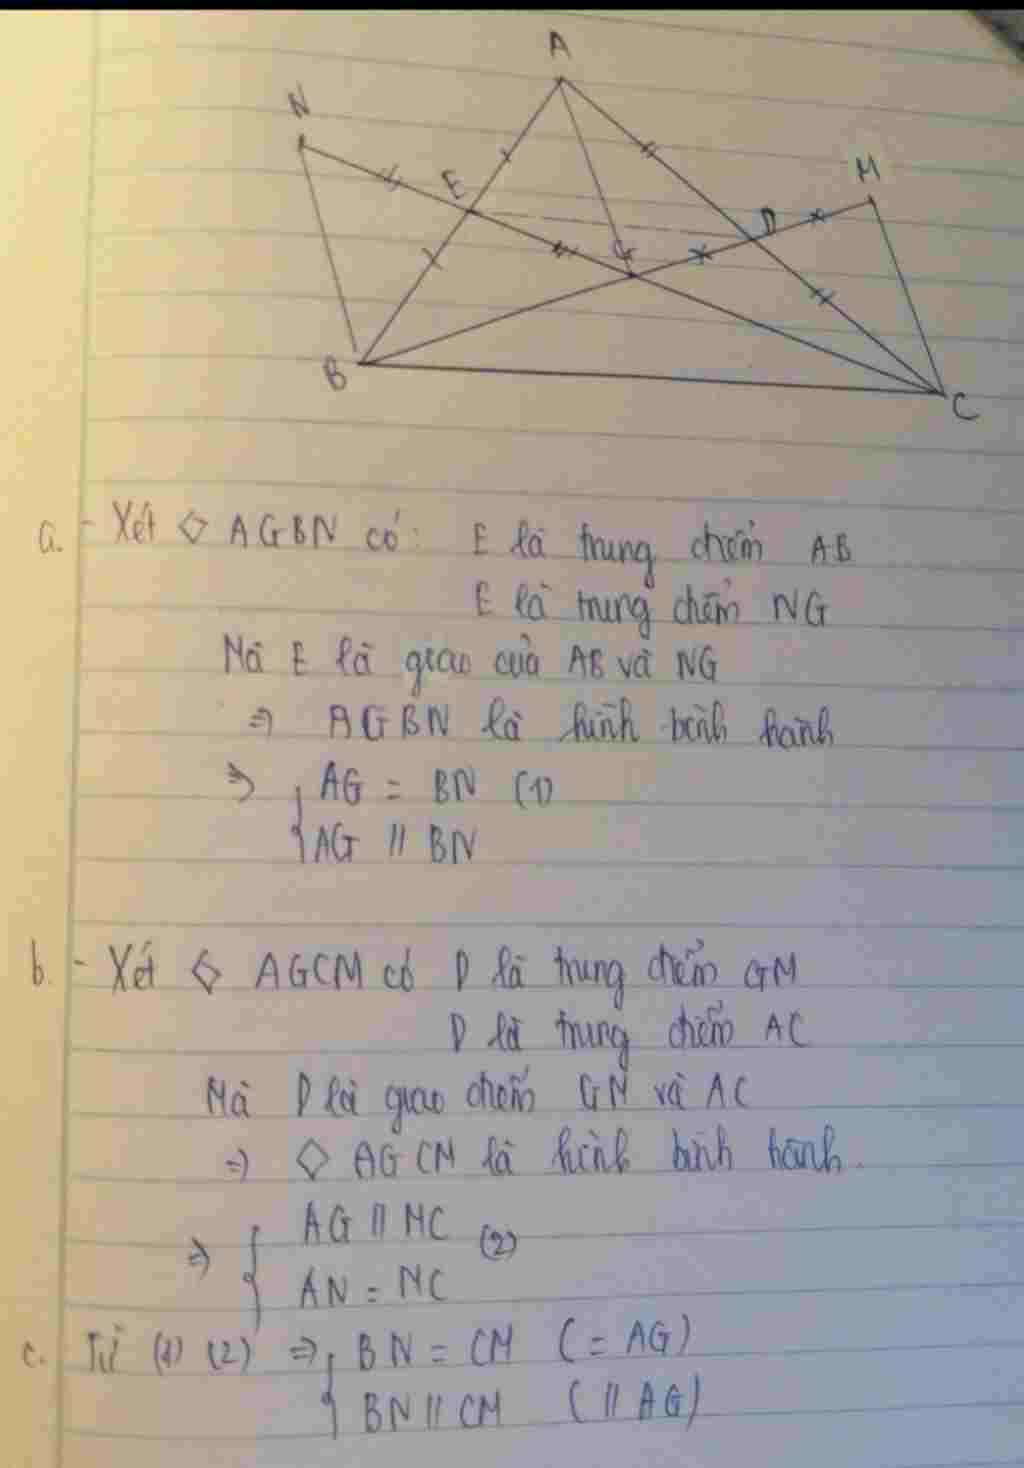 A
N
M
E
D
G
B
C
a. - Xét ◇ AGBN có: E là trung điểm AB
E là trung điểm NG
Mà E là giao của AB và NG
=> AGBN là hình bình hành
=> { AG = BN (1)
AG // BN
b. - Xét ◇ AGCM có D là trung điểm GM
D là trung điểm AC
Mà D là giao điểm GM và AC
=> ◇ AGCM là hình bình hành.
=> { AG // MC (2)
AN = MC
c. Từ (1) (2) => { BN = CM (= AG)
BN // CM ( // AG)